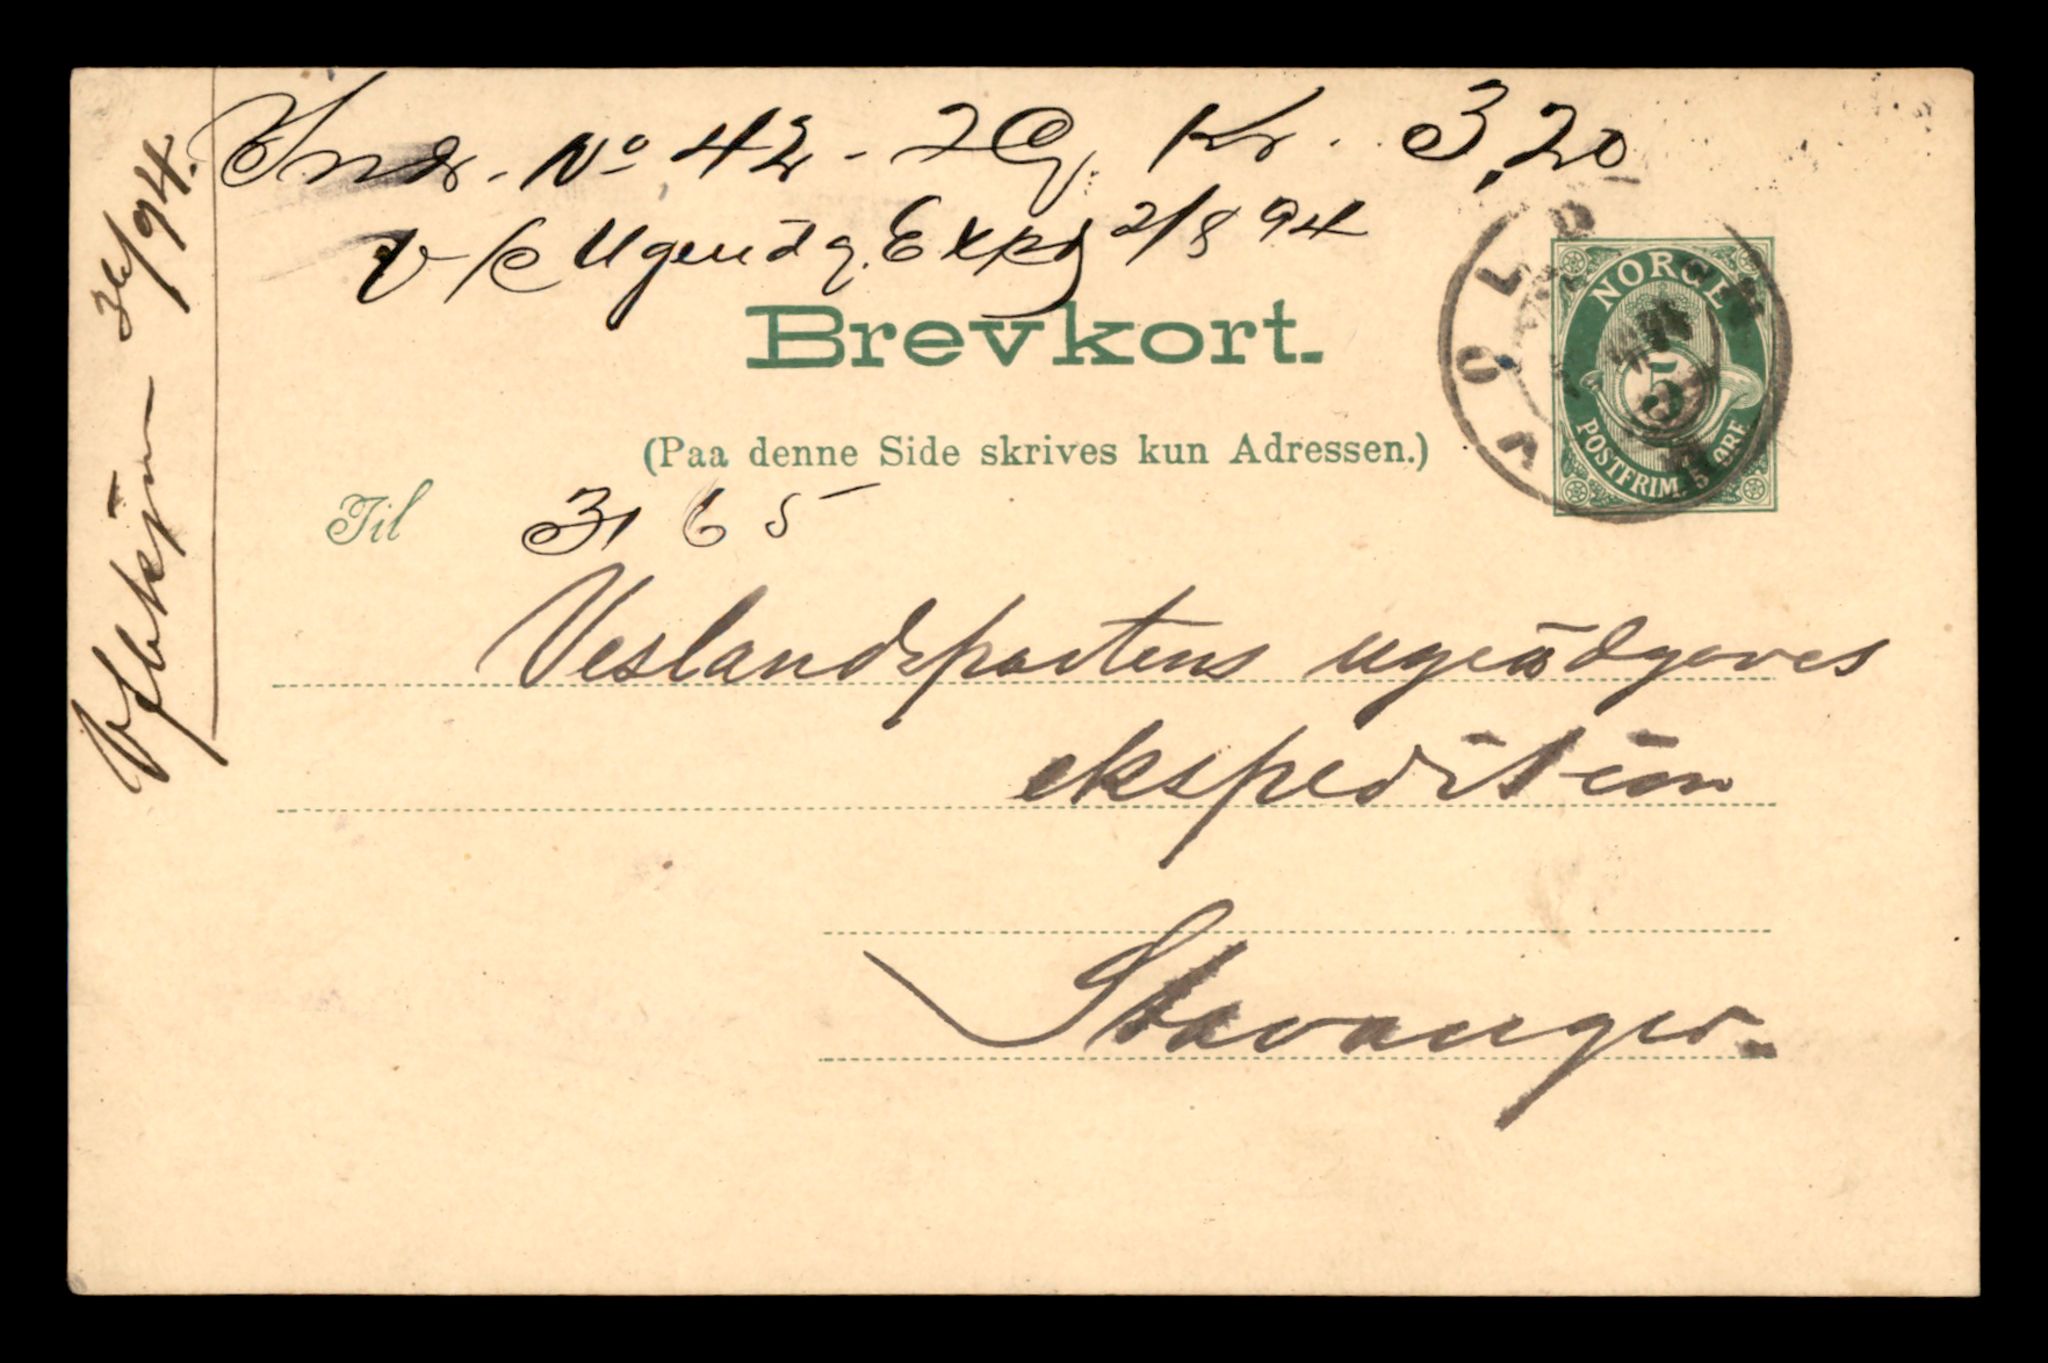 Indr. No 42 - 2 G Kr. 3,20
v/c Ugeudg. Expd 2/8 94
Brevkort.
NORGE
5
POSTFRIM. 5 ØRE
VOLDEN
(Paa denne Side skrives kun Adressen.)
Til 3, 65
Veslandspostens ugeudgaves
ekspedition
Stavanger.
/94.